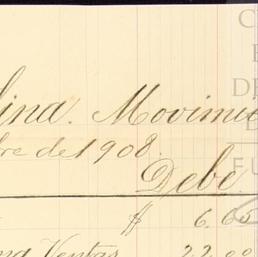 lina. Movimie
bre de 1908.
Debe
$ 6.65
ng Ventas 22.00